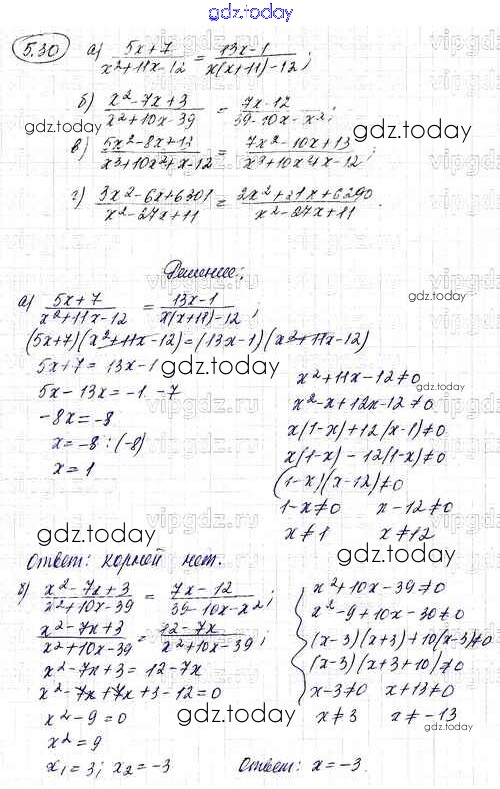 gdz.today
5.30 а) (5x+7)/(x²+11x-12) = (13x-1)/(x(x+11)-12);
б) (x²-7x+3)/(x²+10x-39) = (7x-12)/(39-10x-x²);
в) (5x²-8x+13)/(x³+10x²+x-12) = (7x²-10x+13)/(x³+10x4x-12);
г) (3x²-6x+6301)/(x²-27x+11) = (2x²+21x+6290)/(x²-27x+11).
Решение:
а) (5x+7)/(x²+11x-12) = (13x-1)/(x(x+11)-12);
(5x+7)(x²+11x-12)=(13x-1)(x²+11x-12)
5x+7=13x-1
5x-13x=-1-7
-8x=-8
x=-8:(-8)
x=1
x²+11x-12≠0
x²-x+12x-12≠0
x(1-x)+12(x-1)≠0
x(1-x)-12(1-x)≠0
(1-x)(x-12)≠0
1-x≠0 x-12≠0
x≠1 x≠12
Ответ: корней нет.
б) (x²-7x+3)/(x²+10x-39) = (7x-12)/(39-10x-x²);
(x²-7x+3)/(x²+10x-39) = (12-7x)/(x²+10x-39);
x²-7x+3=12-7x
x²-7x+7x+3-12=0
x²-9=0
x²=9
x₁=3; x₂=-3
x²+10x-39≠0
x²-9+10x-30≠0
(x-3)(x+3)+10(x-3)≠0
(x-3)(x+3+10)≠0
x-3≠0 x+13≠0
x≠3 x≠-13
Ответ: x=-3.
gdz.today